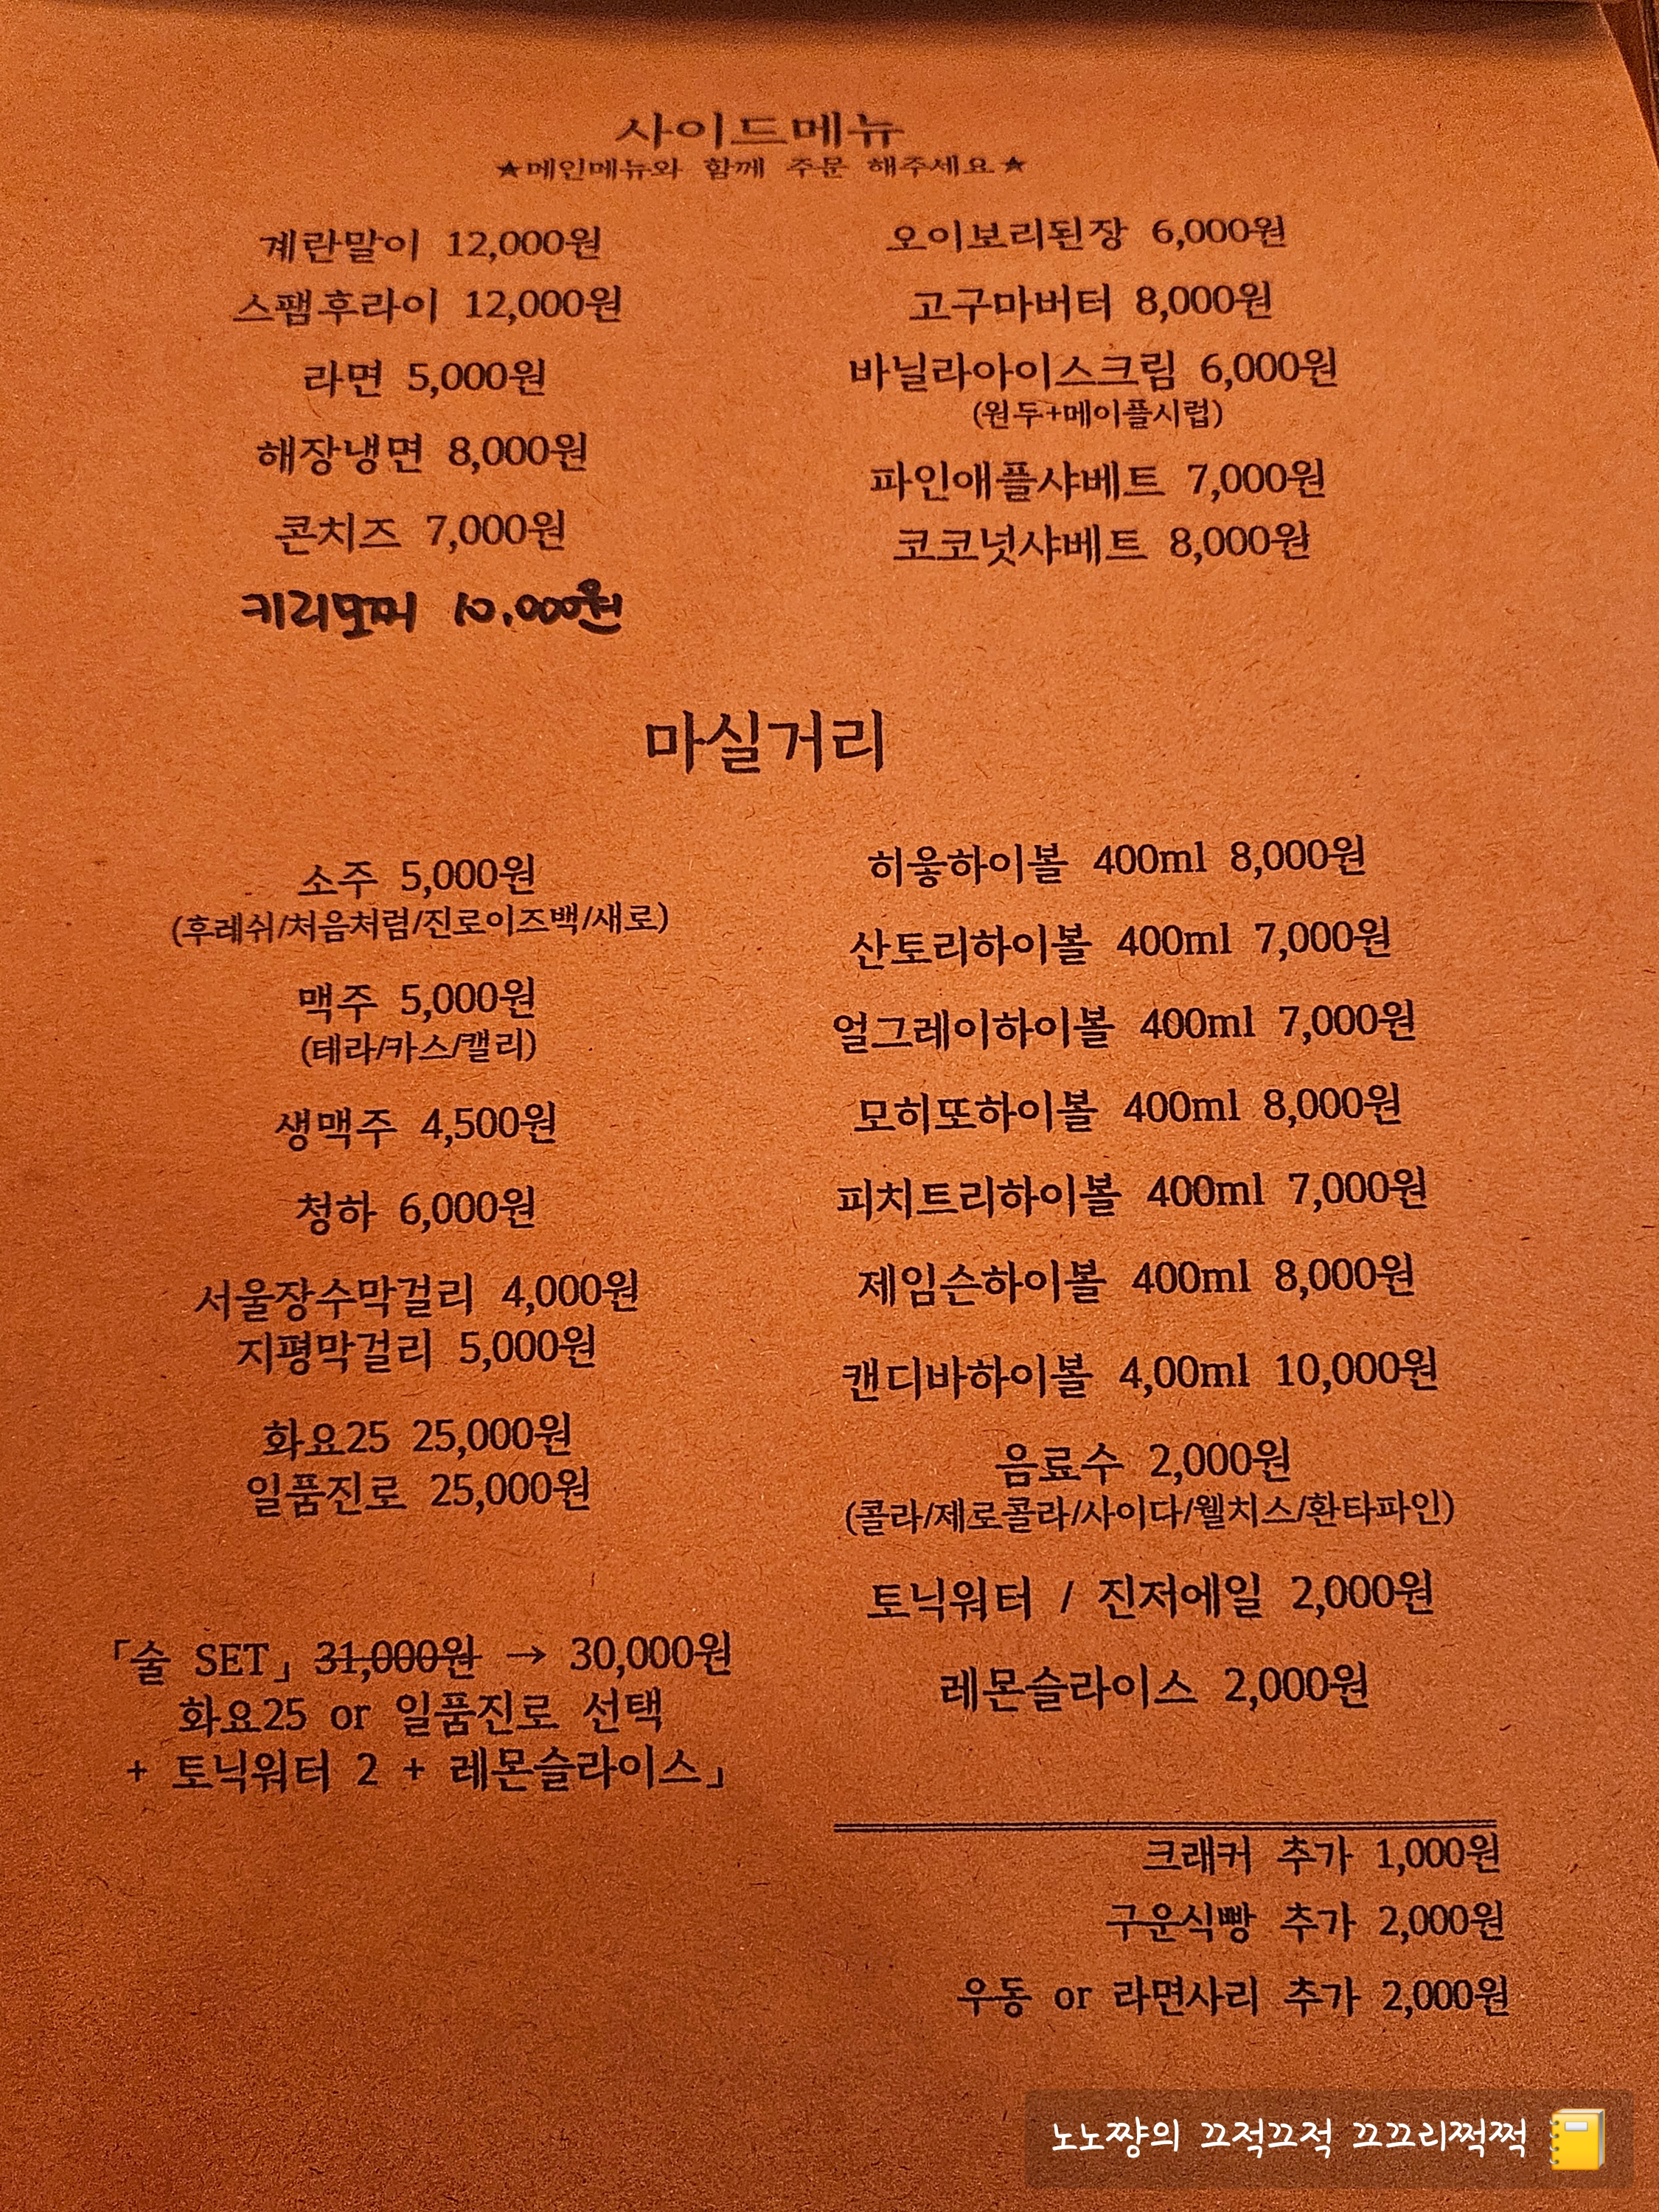 사이드메뉴
★메인메뉴와 함께 주문 해주세요★
계란말이 12,000원
스팸후라이 12,000원
라면 5,000원
해장냉면 8,000원
콘치즈 7,000원
키리모찌 10,000원
오이보리된장 6,000원
고구마버터 8,000원
바닐라아이스크림 6,000원
(원두+메이플시럽)
파인애플샤베트 7,000원
코코넛샤베트 8,000원
마실거리
소주 5,000원
(후레쉬/처음처럼/진로이즈백/새로)
맥주 5,000원
(테라/카스/캘리)
생맥주 4,500원
청하 6,000원
서울장수막걸리 4,000원
지평막걸리 5,000원
화요25 25,000원
일품진로 25,000원
「술 SET」 31,000원 → 30,000원
화요25 or 일품진로 선택
+ 토닉워터 2 + 레몬슬라이스」
히읗하이볼 400ml 8,000원
산토리하이볼 400ml 7,000원
얼그레이하이볼 400ml 7,000원
모히또하이볼 400ml 8,000원
피치트리하이볼 400ml 7,000원
제임슨하이볼 400ml 8,000원
캔디바하이볼 4,00ml 10,000원
음료수 2,000원
(콜라/제로콜라/사이다/웰치스/환타파인)
토닉워터 / 진저에일 2,000원
레몬슬라이스 2,000원
크래커 추가 1,000원
구운식빵 추가 2,000원
우동 or 라면사리 추가 2,000원
노노쨩의 끄적끄적 끄끄리쩍쩍